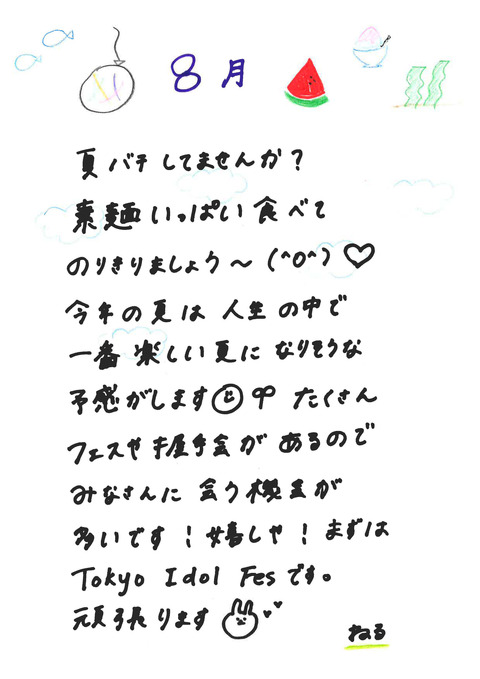 8月
夏バテしてませんか?
素麺いっぱい食べて
のりきりましょう〜(^o^)♡
今年の夏は人生の中で
一番楽しい夏になりそうな
予感がします たくさん
フェスや握手会があるので
みなさんに会う機会が
多いです!嬉しや!まずは
Tokyo Idol Fesです。
頑張ります
ねる